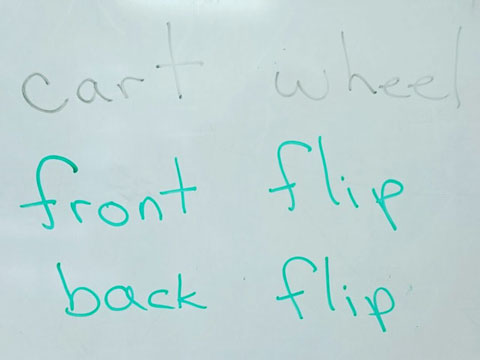 cart wheel
front flip
back flip